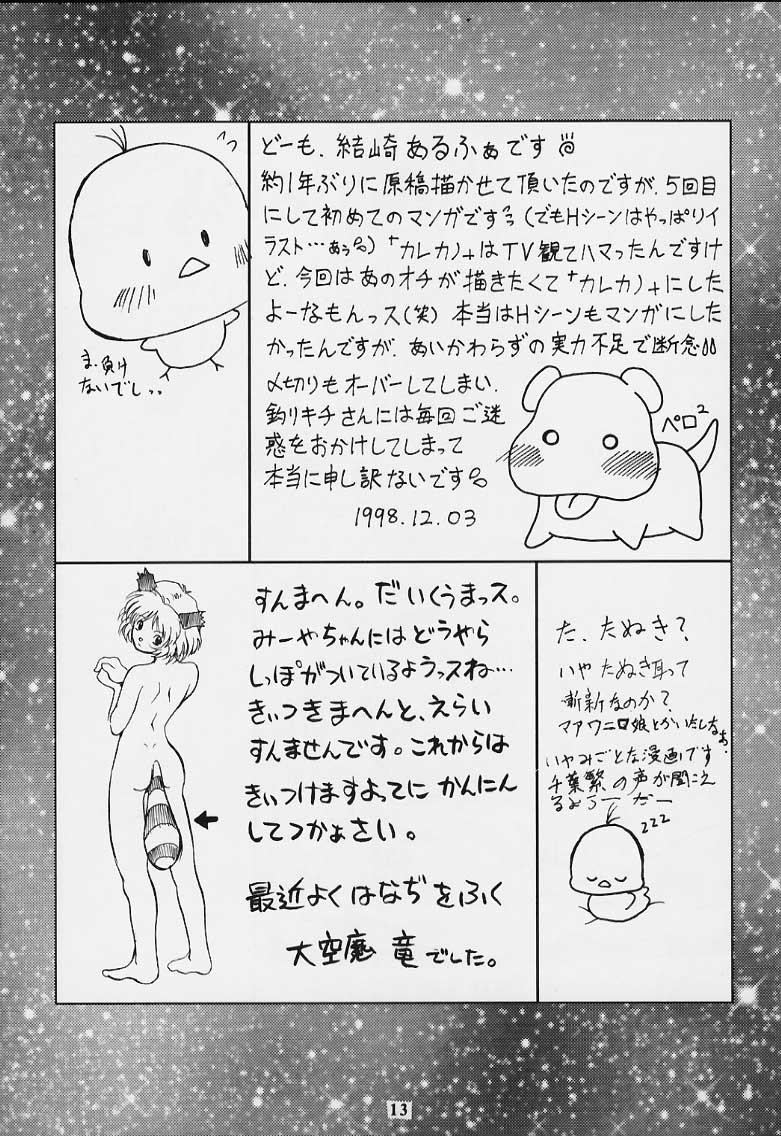 どーも、結崎あるふぁです
約1年ぶりに原稿描かせて頂いたのですが、5回目
にして初めてのマンガですっ(でもHシーンはやっぱりイ
ラスト…あぅ)「カレカノ」はTV観てハマったんですけ
ど、今回はあのオチが描きたくて「カレカノ」にした
よーなもんっス(笑) 本当はHシーンもマンガにした
かったんですが、あいかわらずの実力不足で断念
〆切りもオーバーしてしまい、
釣りキチさんには毎回ご迷
惑をおかけしてしまって
本当に申し訳ないです
1998.12.03
ま、負け
ないでしっ
ペロ2
すんまへん。だいくうまっス。
みーやちゃんにはどうやら
しっぽがついているようっスね…
きぃつきまへんと、えらい
すんませんです。これからは
きぃつけますよってに かんにん
してつかぁさい。
最近よくはなぢをふく
大空魔 竜でした。
た、たぬき?
いや たぬき耳って
斬新なのか?
マアワニ口娘とかいたしなぁ。
いやみごとな漫画です
千葉繁の声が聞こえ
るよぅーだー
zzz
13